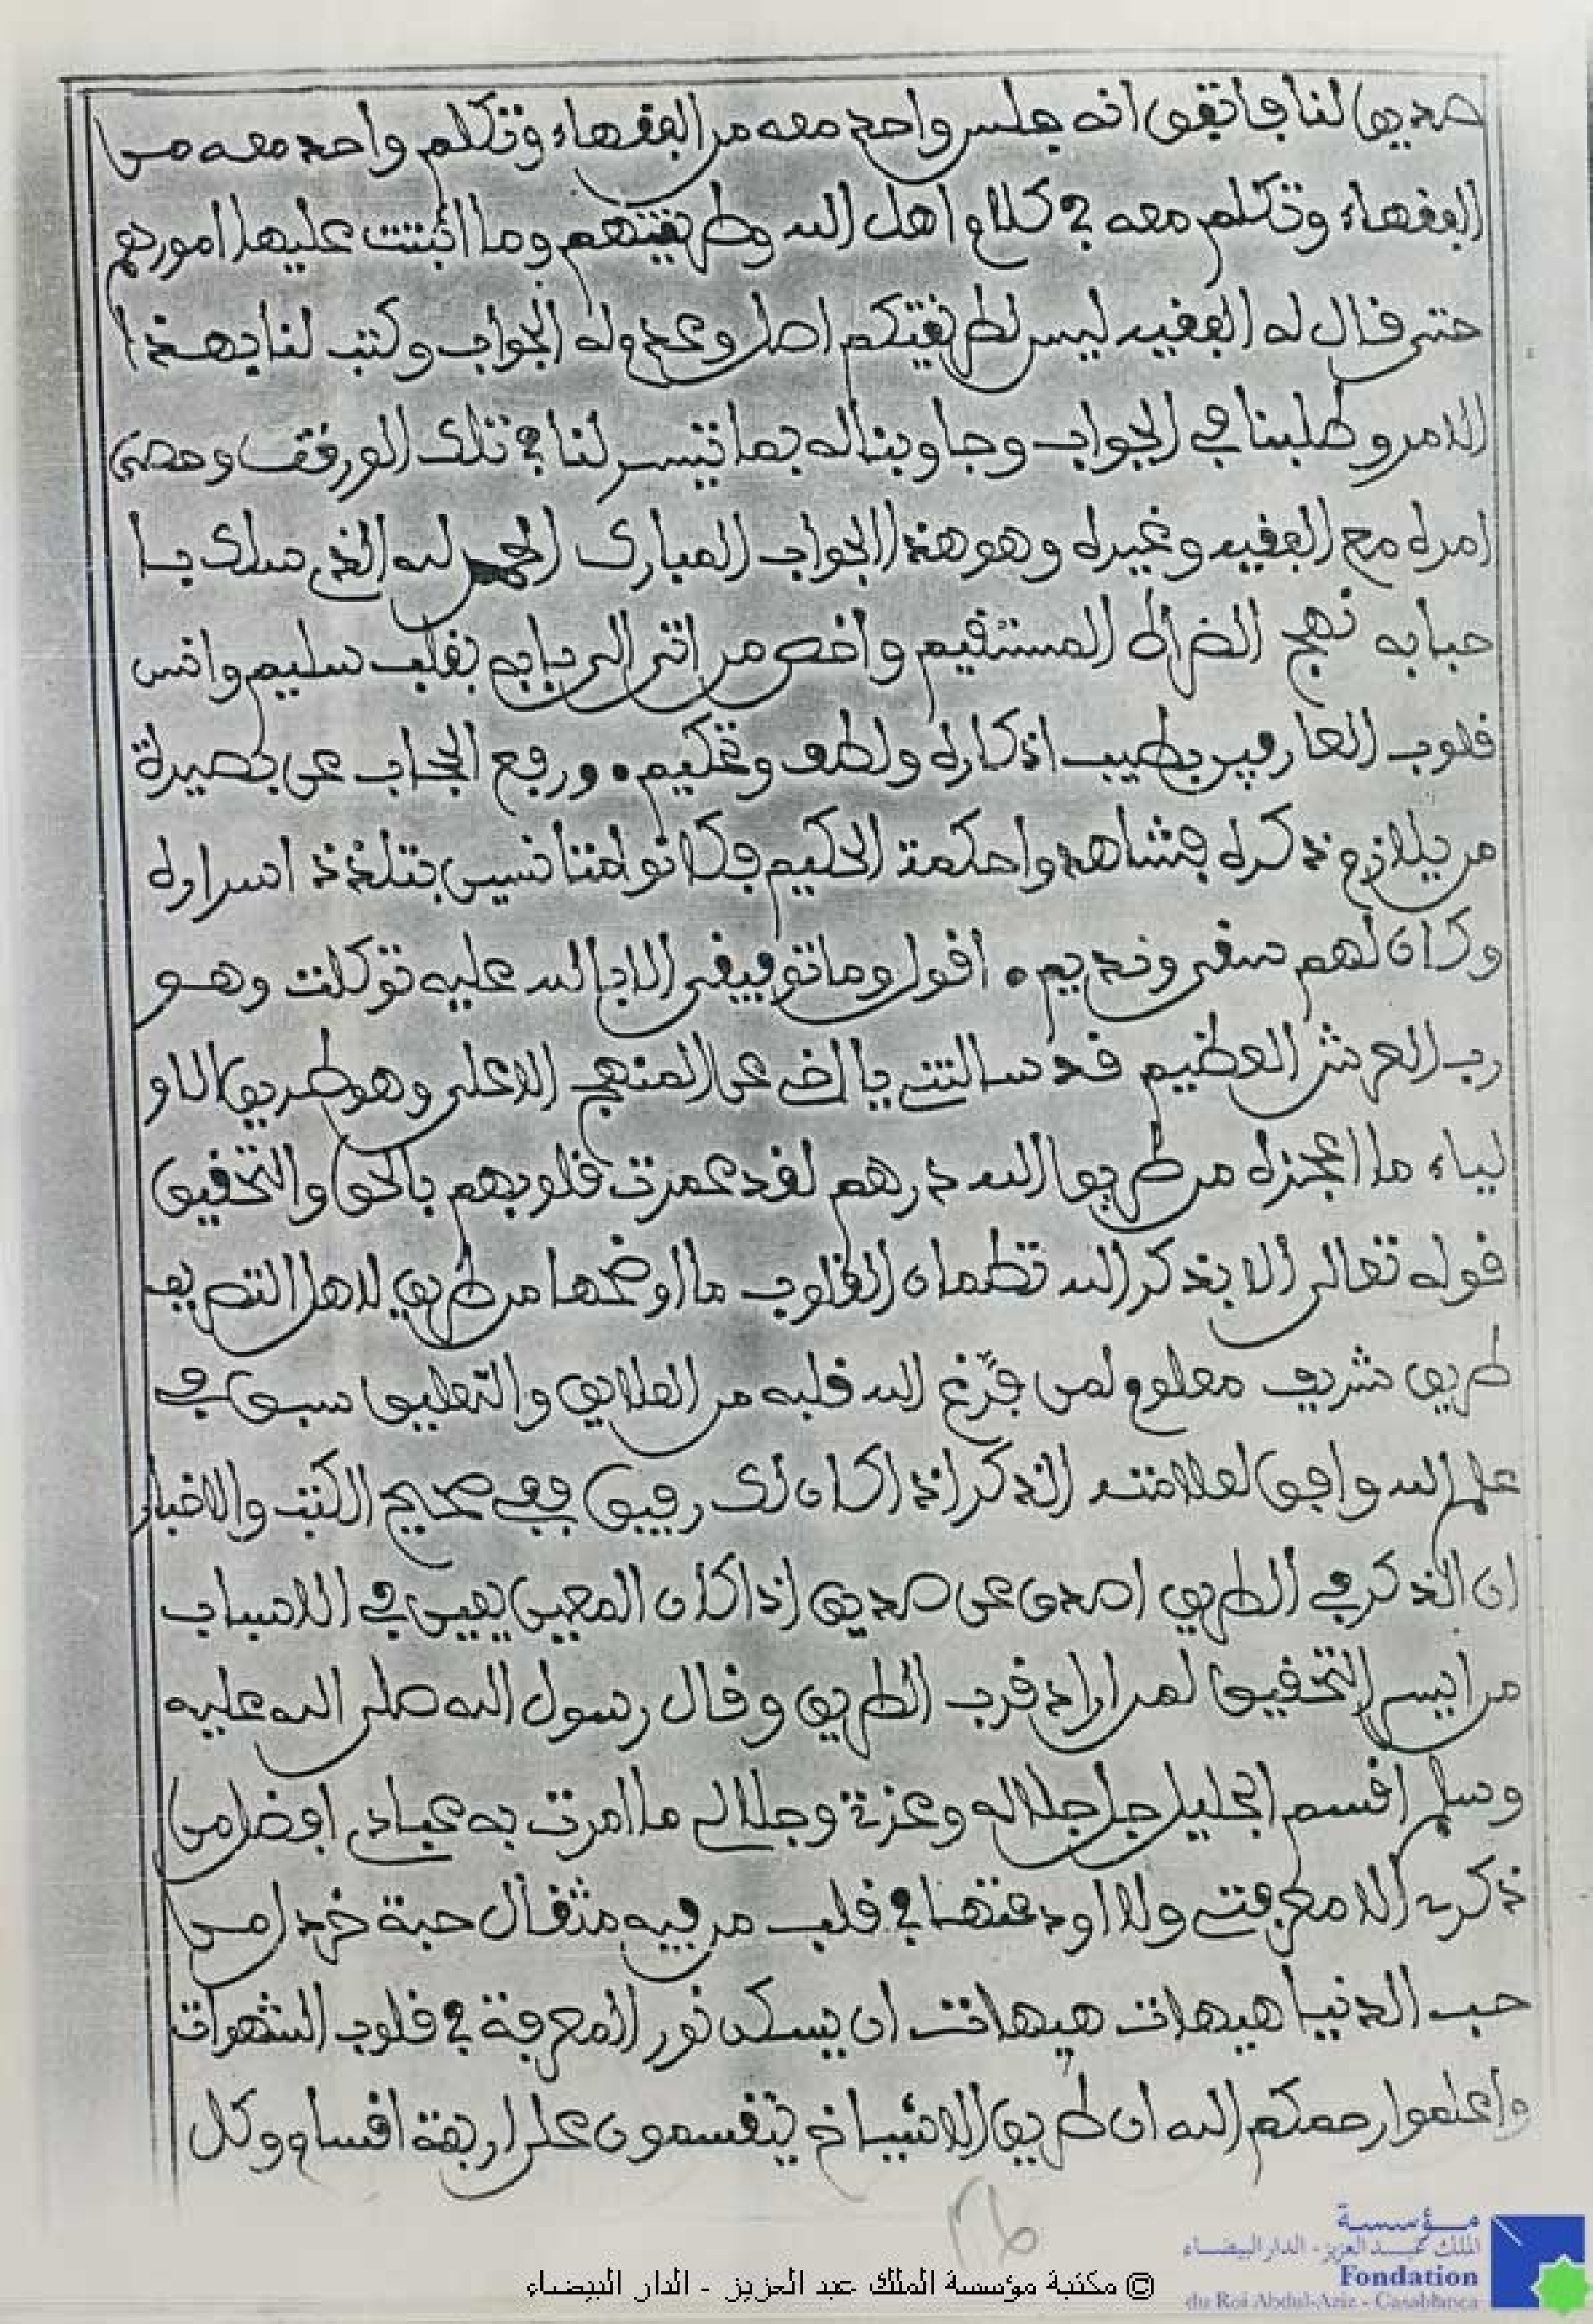 صديق لنا فاتفق انه جلس واحد معه من الفقهاء وتكلم واحد معه من
الفقهاء وتكلم معه في كلام اهل الله وطريقتهم وما اثبتت عليها امورهم
حتى قال له الفقيه ليس لطريقتكم اصل وعدوله الجواب وكتب لنا بهذا
الامر وطلبنا في الجواب وجاوبناله بما تيسر لنا في تلك الورقت ومضى
امره مع الفقيه وغيره وهو هذا الجواب المبارك الحمد لله الذي سلك با
حبابه نهج الضراط المستقيم واخص من اتى الى بابه بقلب سليم وانس
قلوب العارفين بطيب اذكاره ولطف وتحكيم ورفع الحجاب عن بصيرة
من يلازم ذكره فشاهدوا حكمة الحكيم فكانوا متانسين بتلذذ اسراره
وكان لهم سفى ونديم اقول وما توفيقي الا بالله عليه توكلت وهو
رب العرش العظيم قد سالتني يا اخي عن المنهج الاعلى وهو طريق الاو
لياء ما اعجزه من طريق الله درهم لقد عمرت قلوبهم بالحق والتحقيق
قوله تعالى الا بذكر الله تطمان القلوب ما اوضحها من طريق لاهل التصريف
طريق شريف معلوم لمن فرّغ الله قلبه من العلايق والتعليق سبق في
علم الله وافق لعلامته الذكر اذا كان لك رفيق ففي صحيح الكتب والاخبار
ان الذكر في الطريق اصدق عن صديق اذا كان المعين يعين في الاسباب
من ايسر التحقيق لمن اراد قرب الطريق وقال رسول الله صلى الله عليه
وسلم اقسم الجليل جل جلاله وعزتي وجلالي ما امرت به عبادي افضل من
ذكري الا معرفتي ولا اودعتها في قلب من فيه مثقال حبة خردل من
حب الدنيا هيهات هيهات ان يسكن نور المعرفة في قلوب الشهوات
واعلموا رحمكم الله ان طريق الاشياخ يتقسمون على اربعة اقسام وكل
مؤسسة
الملك عبد العزيز - الدار البيضاء
Fondation
du Roi Abdul-Aziz - Casablanca
© مكتبة مؤسسة الملك عبد العزيز - الدار البيضاء